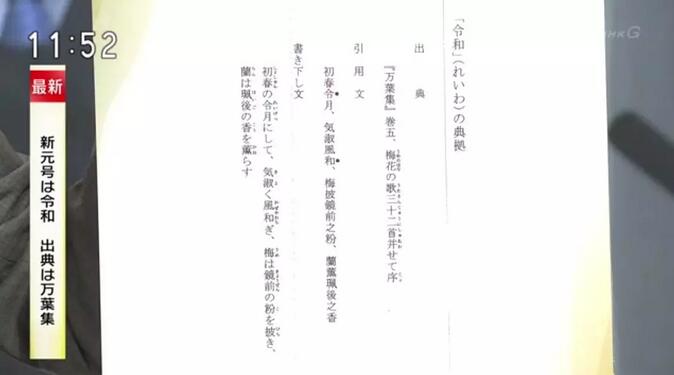 11:52
NHK G
最新
新元号は令和 出典は万葉集
「令和」（れいわ）の典拠
出典
『万葉集』巻五、梅花の歌三十二首并せて序
引用文
初春令月、気淑風和、梅披鏡前之粉、蘭薫珮後之香
書き下し文
初春の令月にして、気淑く風和ぎ、梅は鏡前の粉を披き、
蘭は珮後の香を薫らす